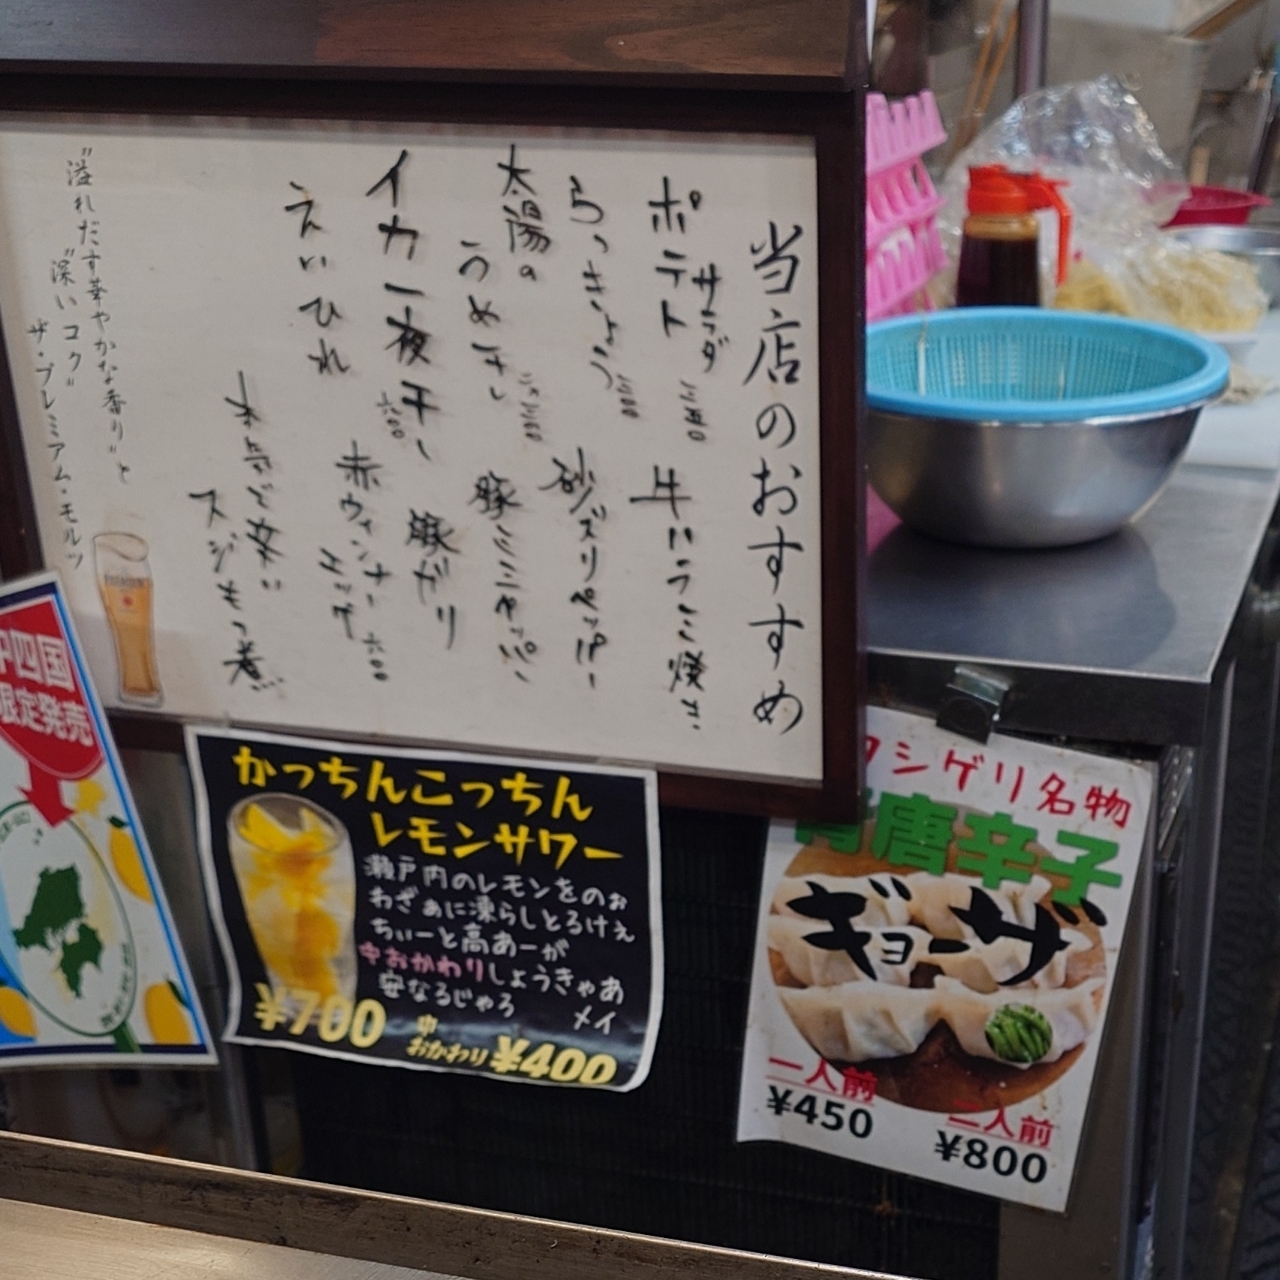 当店のおすすめ
ポテトサラダ
牛ハラミ焼き
らっきょう
砂ズリペッパー
太陽の
うめ干し
豚ミミヤッパ
イカ一夜干し
豚ガリ
えいひれ
赤ウィンナー
エッグ
本気で辛い
スジもつ煮
"溢れだす華やかな香り"と
"深いコク"
ザ・プレミアム・モルツ
中四国
限定発売
かっちんこっちん
レモンサワー
瀬戸内のレモンをのぉ
わざぁに凍らしとるけぇ
ちぃーと高あーが
中おかわりしょうきゃあ
安なるじゃろ
メイ
¥700
中
おかわり ¥400
タシゲリ名物
青唐辛子
ギョーザ
一人前
¥450
二人前
¥800